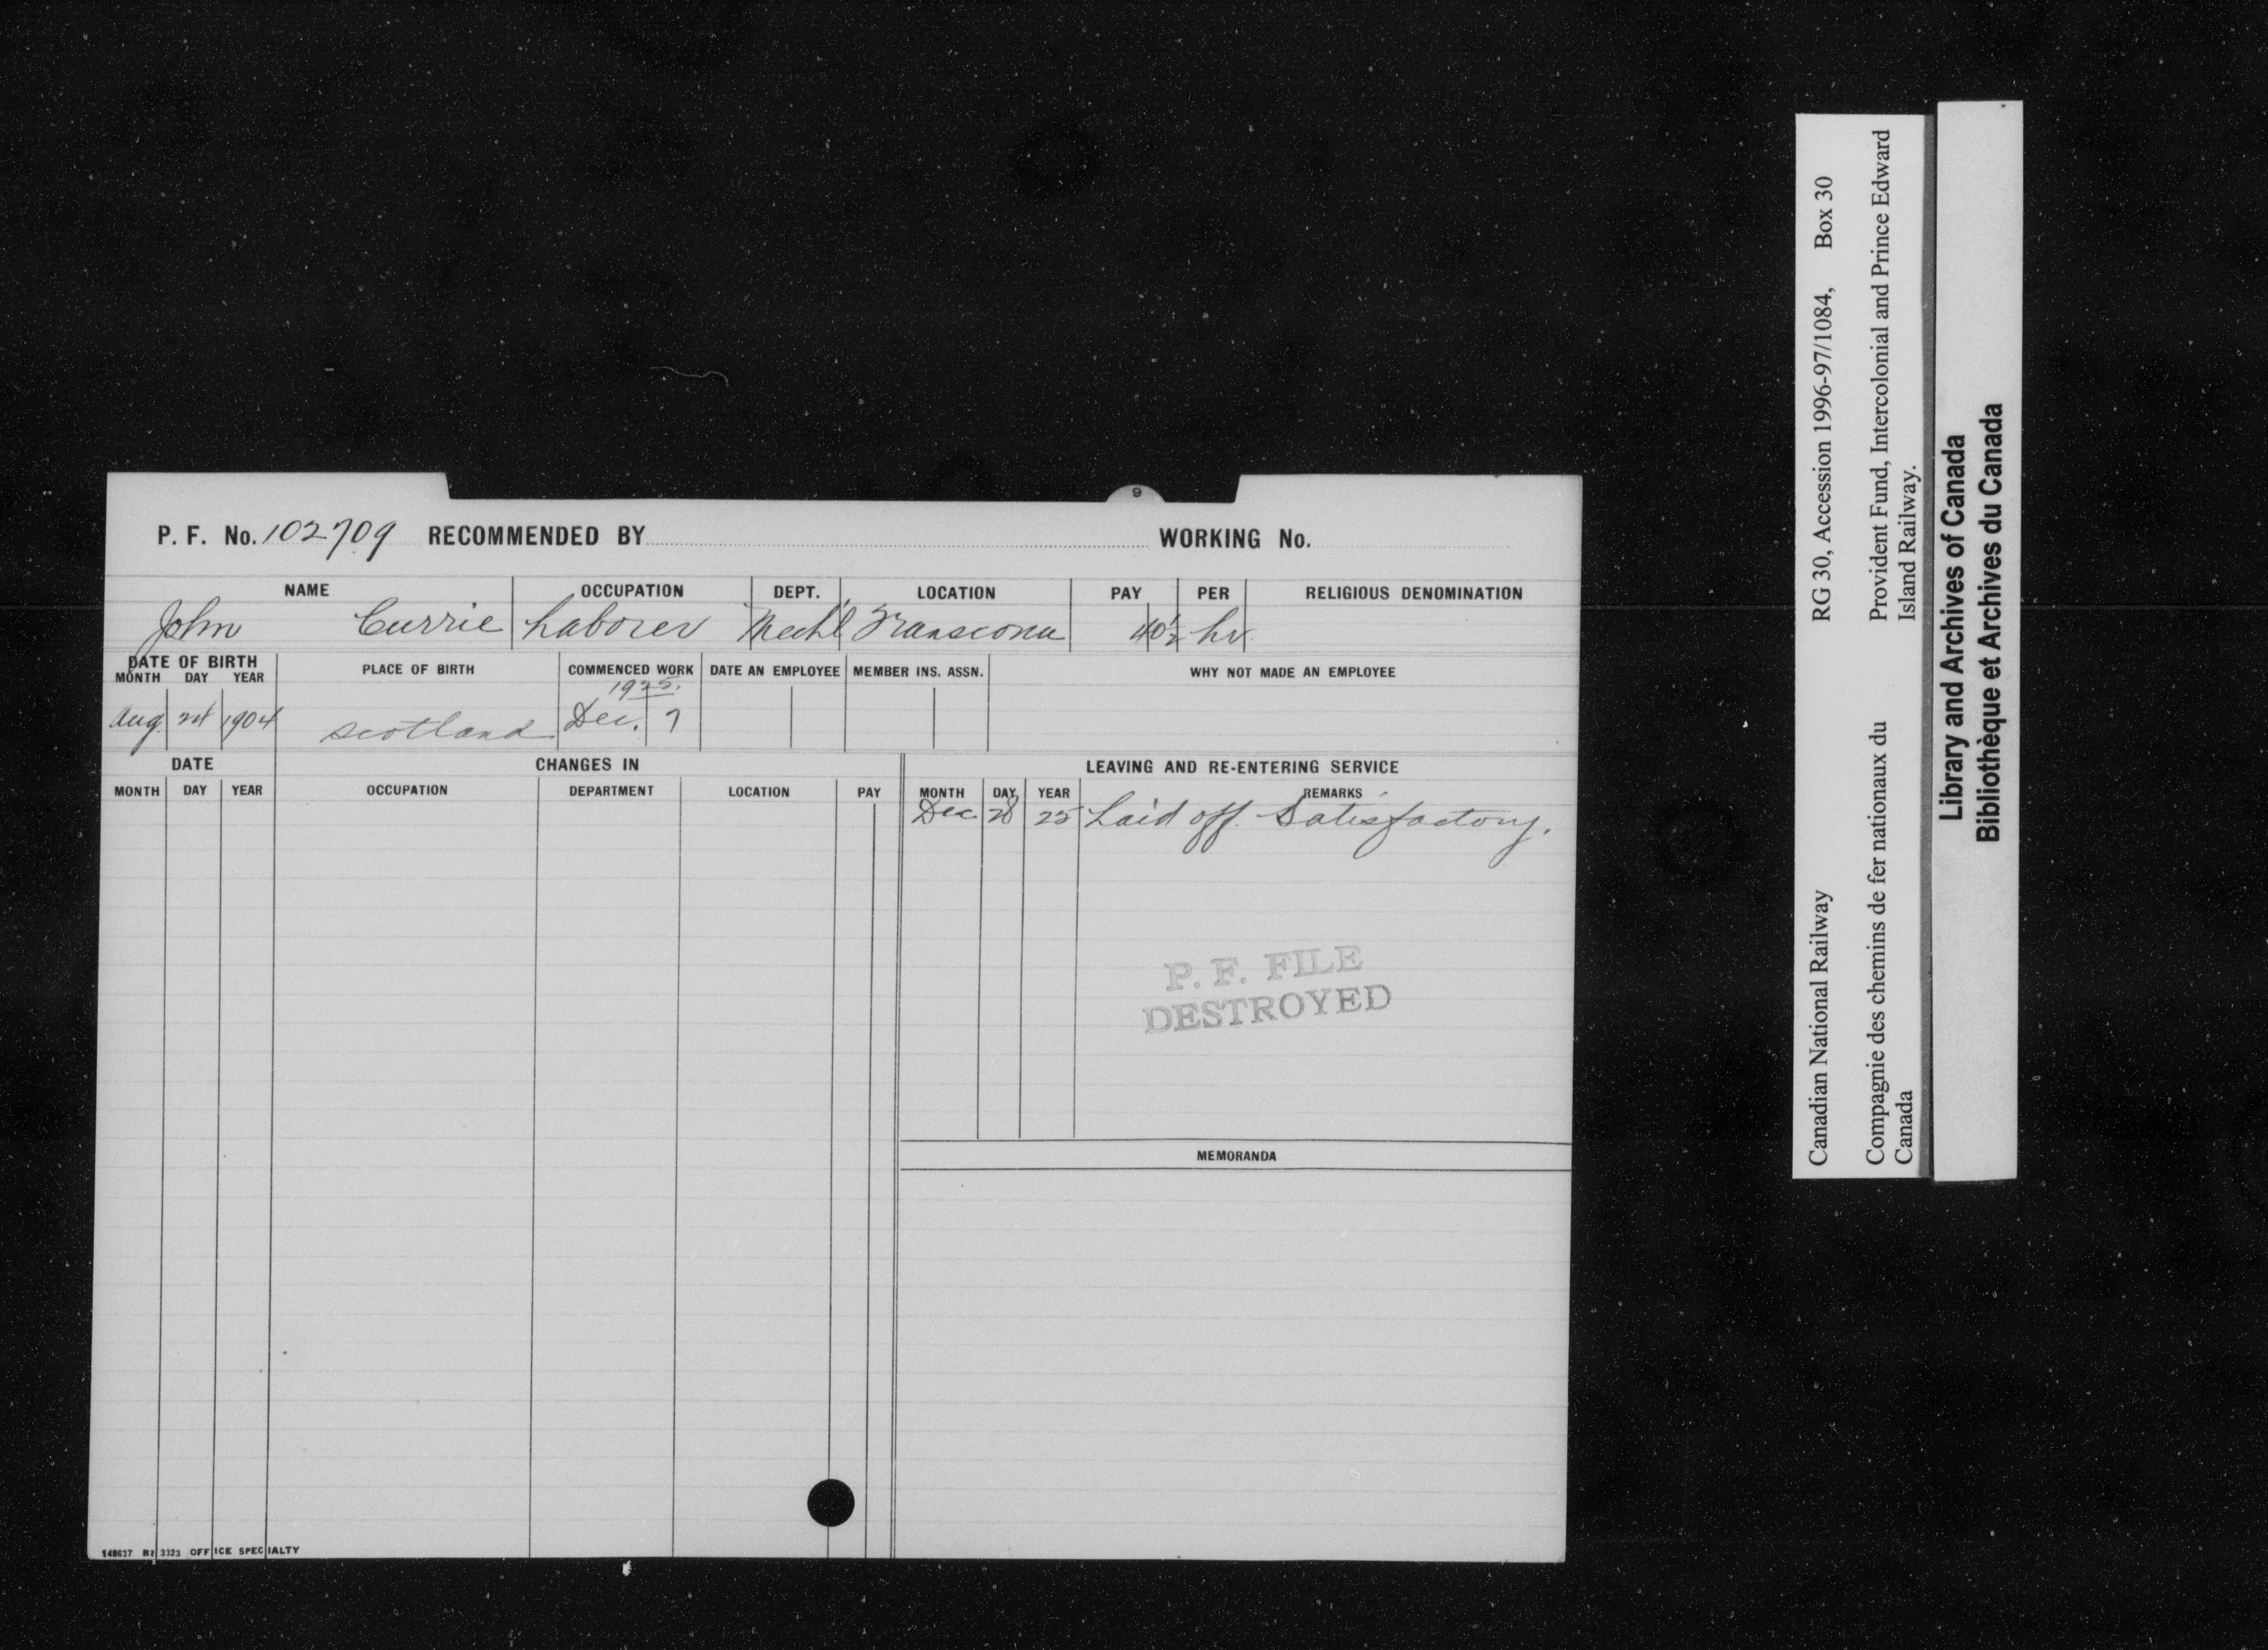 9
P. F. No. 102709 RECOMMENDED BY WORKING No.
NAME OCCUPATION DEPT. LOCATION PAY PER RELIGIOUS DENOMINATION
John Currie Laborer Mech'l Transcona 40½ hr
DATE OF BIRTH PLACE OF BIRTH COMMENCED WORK DATE AN EMPLOYEE MEMBER INS. ASSN. WHY NOT MADE AN EMPLOYEE
MONTH DAY YEAR
1925.
Aug 24 1904 Scotland Dec. 7
DATE CHANGES IN LEAVING AND RE-ENTERING SERVICE
MONTH DAY YEAR OCCUPATION DEPARTMENT LOCATION PAY MONTH DAY YEAR REMARKS
Dec 28 25 Laid off. Satisfactory.
P. F. FILE
DESTROYED
MEMORANDA
148637 3323 OFFICE SPECIALTY
Canadian National Railway RG 30, Accession 1996-97/1084, Box 30
Compagnie des chemins de fer nationaux du Provident Fund, Intercolonial and Prince Edward
Canada Island Railway.
Library and Archives of Canada
Bibliothèque et Archives du Canada